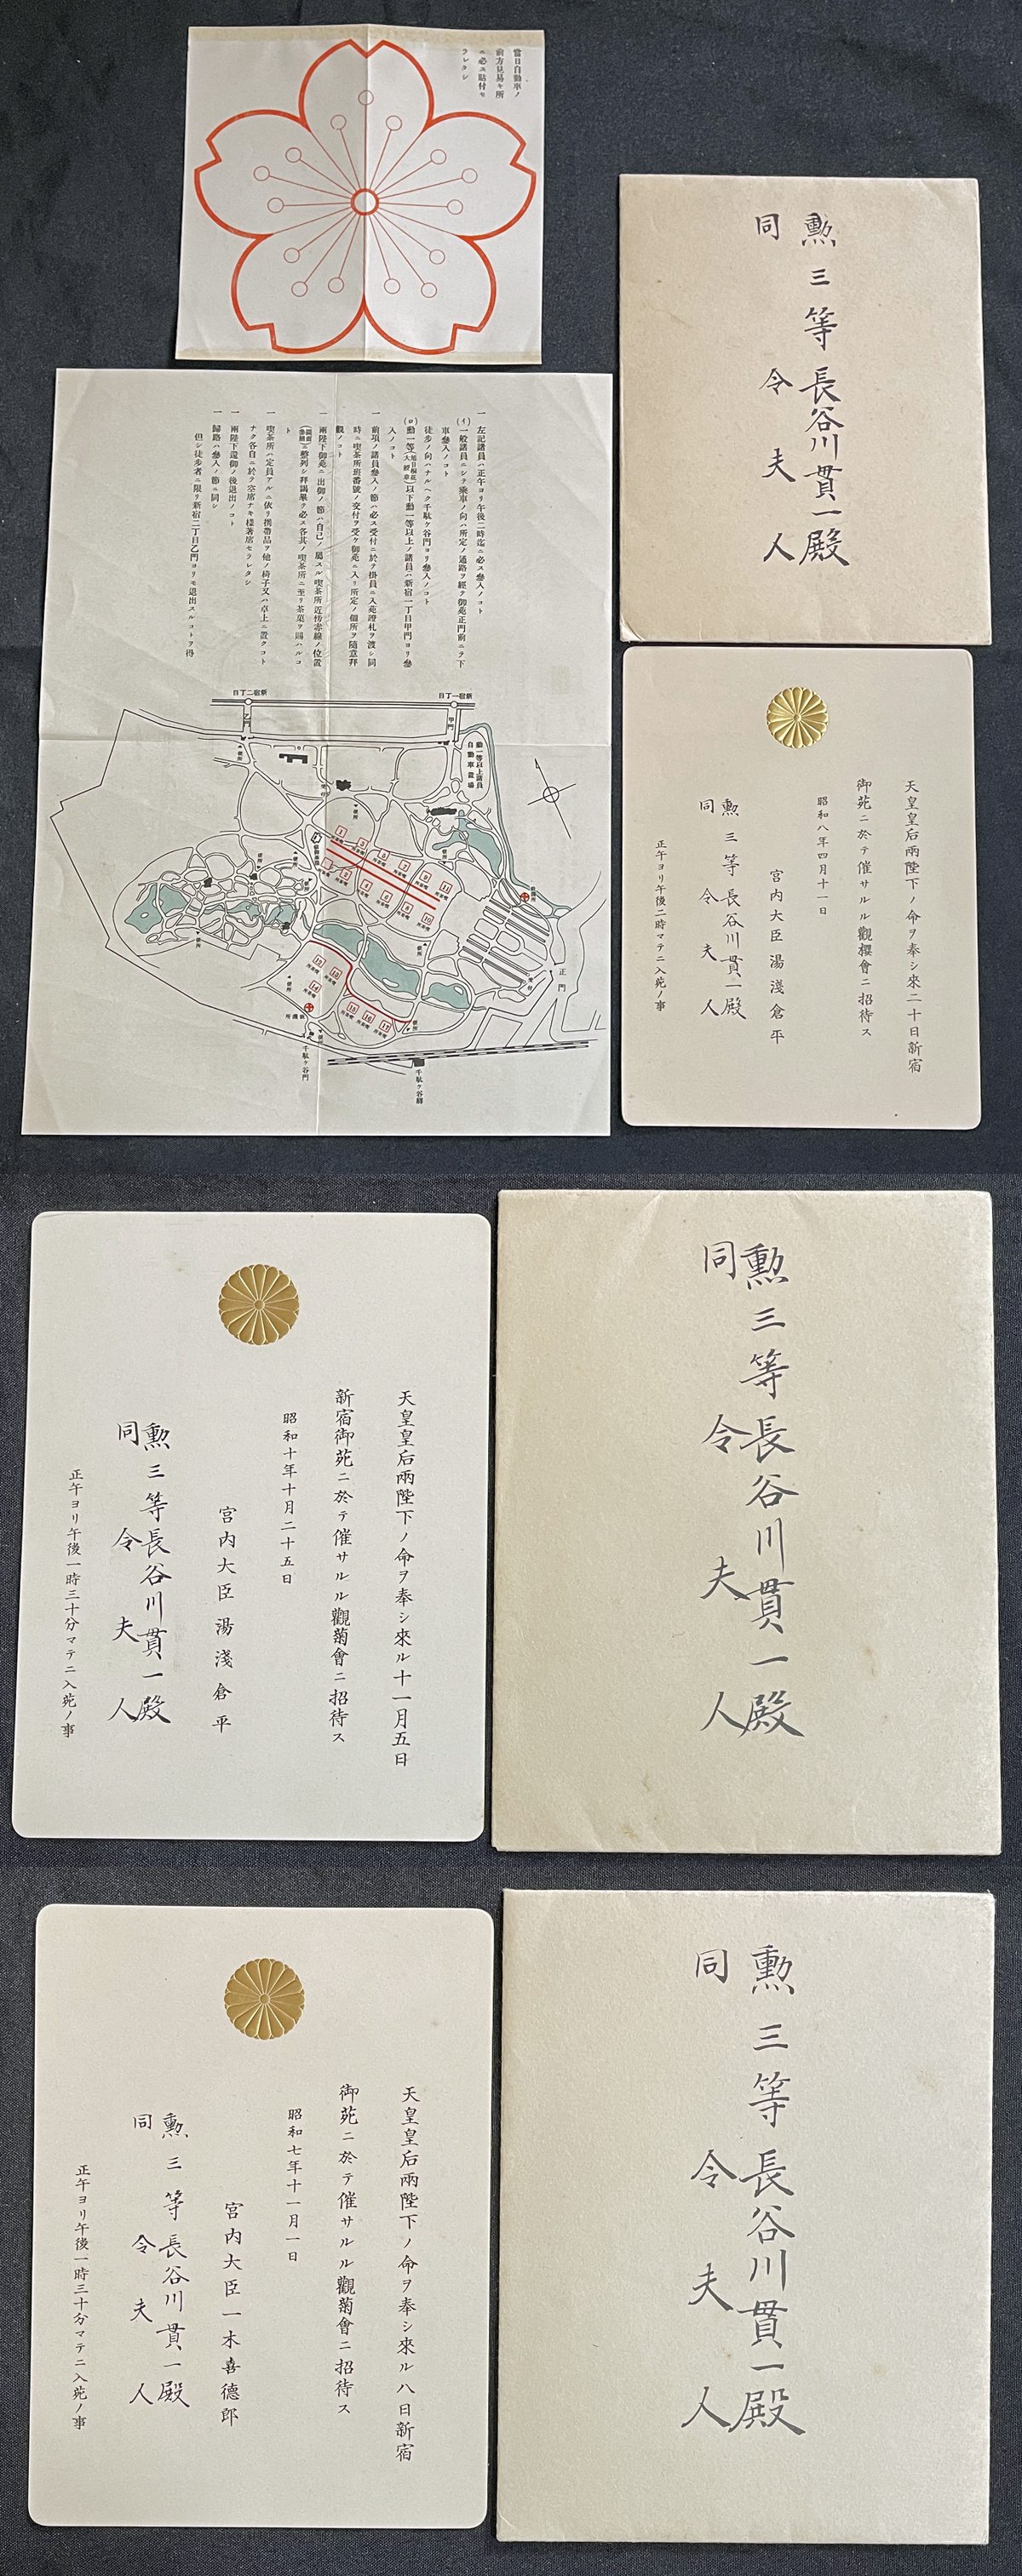 當日自動車ノ
前方見易キ所
ニ必ス貼付セ
ラレタシ
勲三等長谷川貫一殿
同令夫人
一 左記諸員ハ正午ヨリ午後二時迄ニ必ス參入ノコト
(イ)一般諸員ニシテ乘車ノ向ハ所定ノ通路ヲ經テ御苑正門前ニテ下
車參入ノコト
徒歩ノ向ハナルヘク千駄ケ谷門ヨリ參入ノコト
(ロ)勲一等以下勲一等以上ノ諸員ハ新宿一丁目甲門ヨリ參
入ノコト
一 前項ノ諸員參入ノ節ハ必ス受付ニ於テ掛員ニ入苑證札ヲ渡シ同
時ニ喫茶所班番號ノ交付ヲ受ケ御苑ニ入リ所定ノ個所ヲ隨意拜
觀ノコト
一 兩陛下御苑ニ出御ノ節ハ自己ノ屬スル喫茶所近傍赤線ノ位置
ニ整列シ拜謁畢テ必ス各其ノ喫茶所ニ至リ茶菓ヲ賜ハルコ
ト
一 喫茶所ハ定員アルニ依リ携帶品ヲ他ノ椅子又ハ卓上ニ置クコト
ナク各自ニ於テ空席ナキ樣著席セラレタシ
一 兩陛下還御ノ後退出ノコト
一 歸路ハ參入ノ節ニ同シ
但シ徒歩者ニ限リ新宿二丁目乙門ヨリモ退出スルコトヲ得
新宿二丁目
新宿一丁目
乙門
甲門
勲一等以上諸員
自動車置場
正門
千駄ケ谷門
千駄ケ谷驛
天皇皇后兩陛下ノ命ヲ奉シ來二十日新宿
御苑ニ於テ催サルル觀櫻會ニ招待ス
昭和八年四月十一日
宮内大臣湯淺倉平
勲三等長谷川貫一殿
同令夫人
正午ヨリ午後二時マテニ入苑ノ事
天皇皇后兩陛下ノ命ヲ奉シ來ル十一月五日
新宿御苑ニ於テ催サルル觀菊會ニ招待ス
昭和十年十月二十五日
宮内大臣湯淺倉平
勲三等長谷川貫一殿
同令夫人
正午ヨリ午後一時三十分マテニ入苑ノ事
勲三等長谷川貫一殿
同令夫人
天皇皇后兩陛下ノ命ヲ奉シ來ル八日新宿
御苑ニ於テ催サルル觀菊會ニ招待ス
昭和七年十一月一日
宮内大臣一木喜德郎
勲三等長谷川貫一殿
同令夫人
正午ヨリ午後一時三十分マテニ入苑ノ事
勲三等長谷川貫一殿
同令夫人